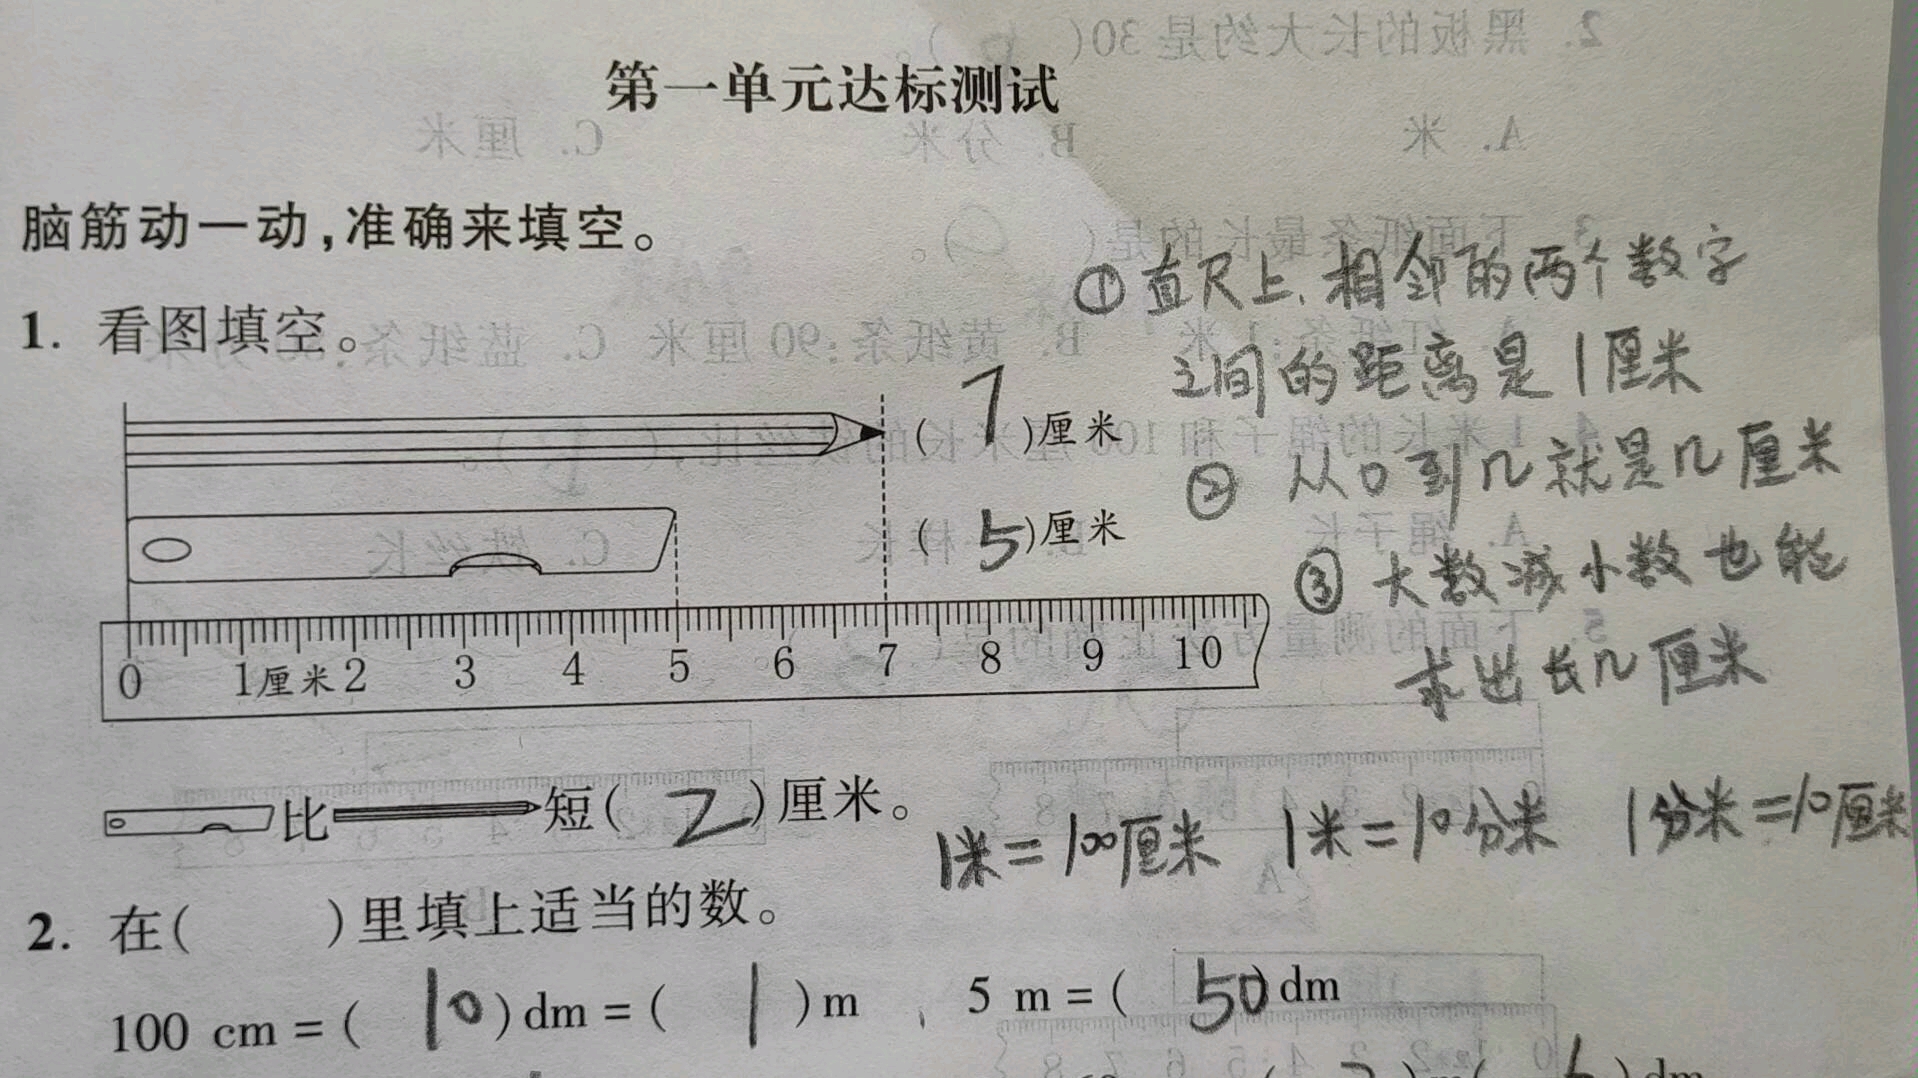 第一单元达标测试
脑筋动一动,准确来填空。
1. 看图填空。
①直尺上,相邻的两个数字
之间的距离是1厘米
②从0到几就是几厘米
③大数减小数也能
求出长几厘米
( 7 )厘米
( 5 )厘米
0 1厘米 2 3 4 5 6 7 8 9 10
比 短( 2 )厘米。
1米=100厘米 1米=10分米 1分米=10厘米
2. 在( )里填上适当的数。
100 cm=( 10 )dm=( 1 )m 5 m=( 50 )dm